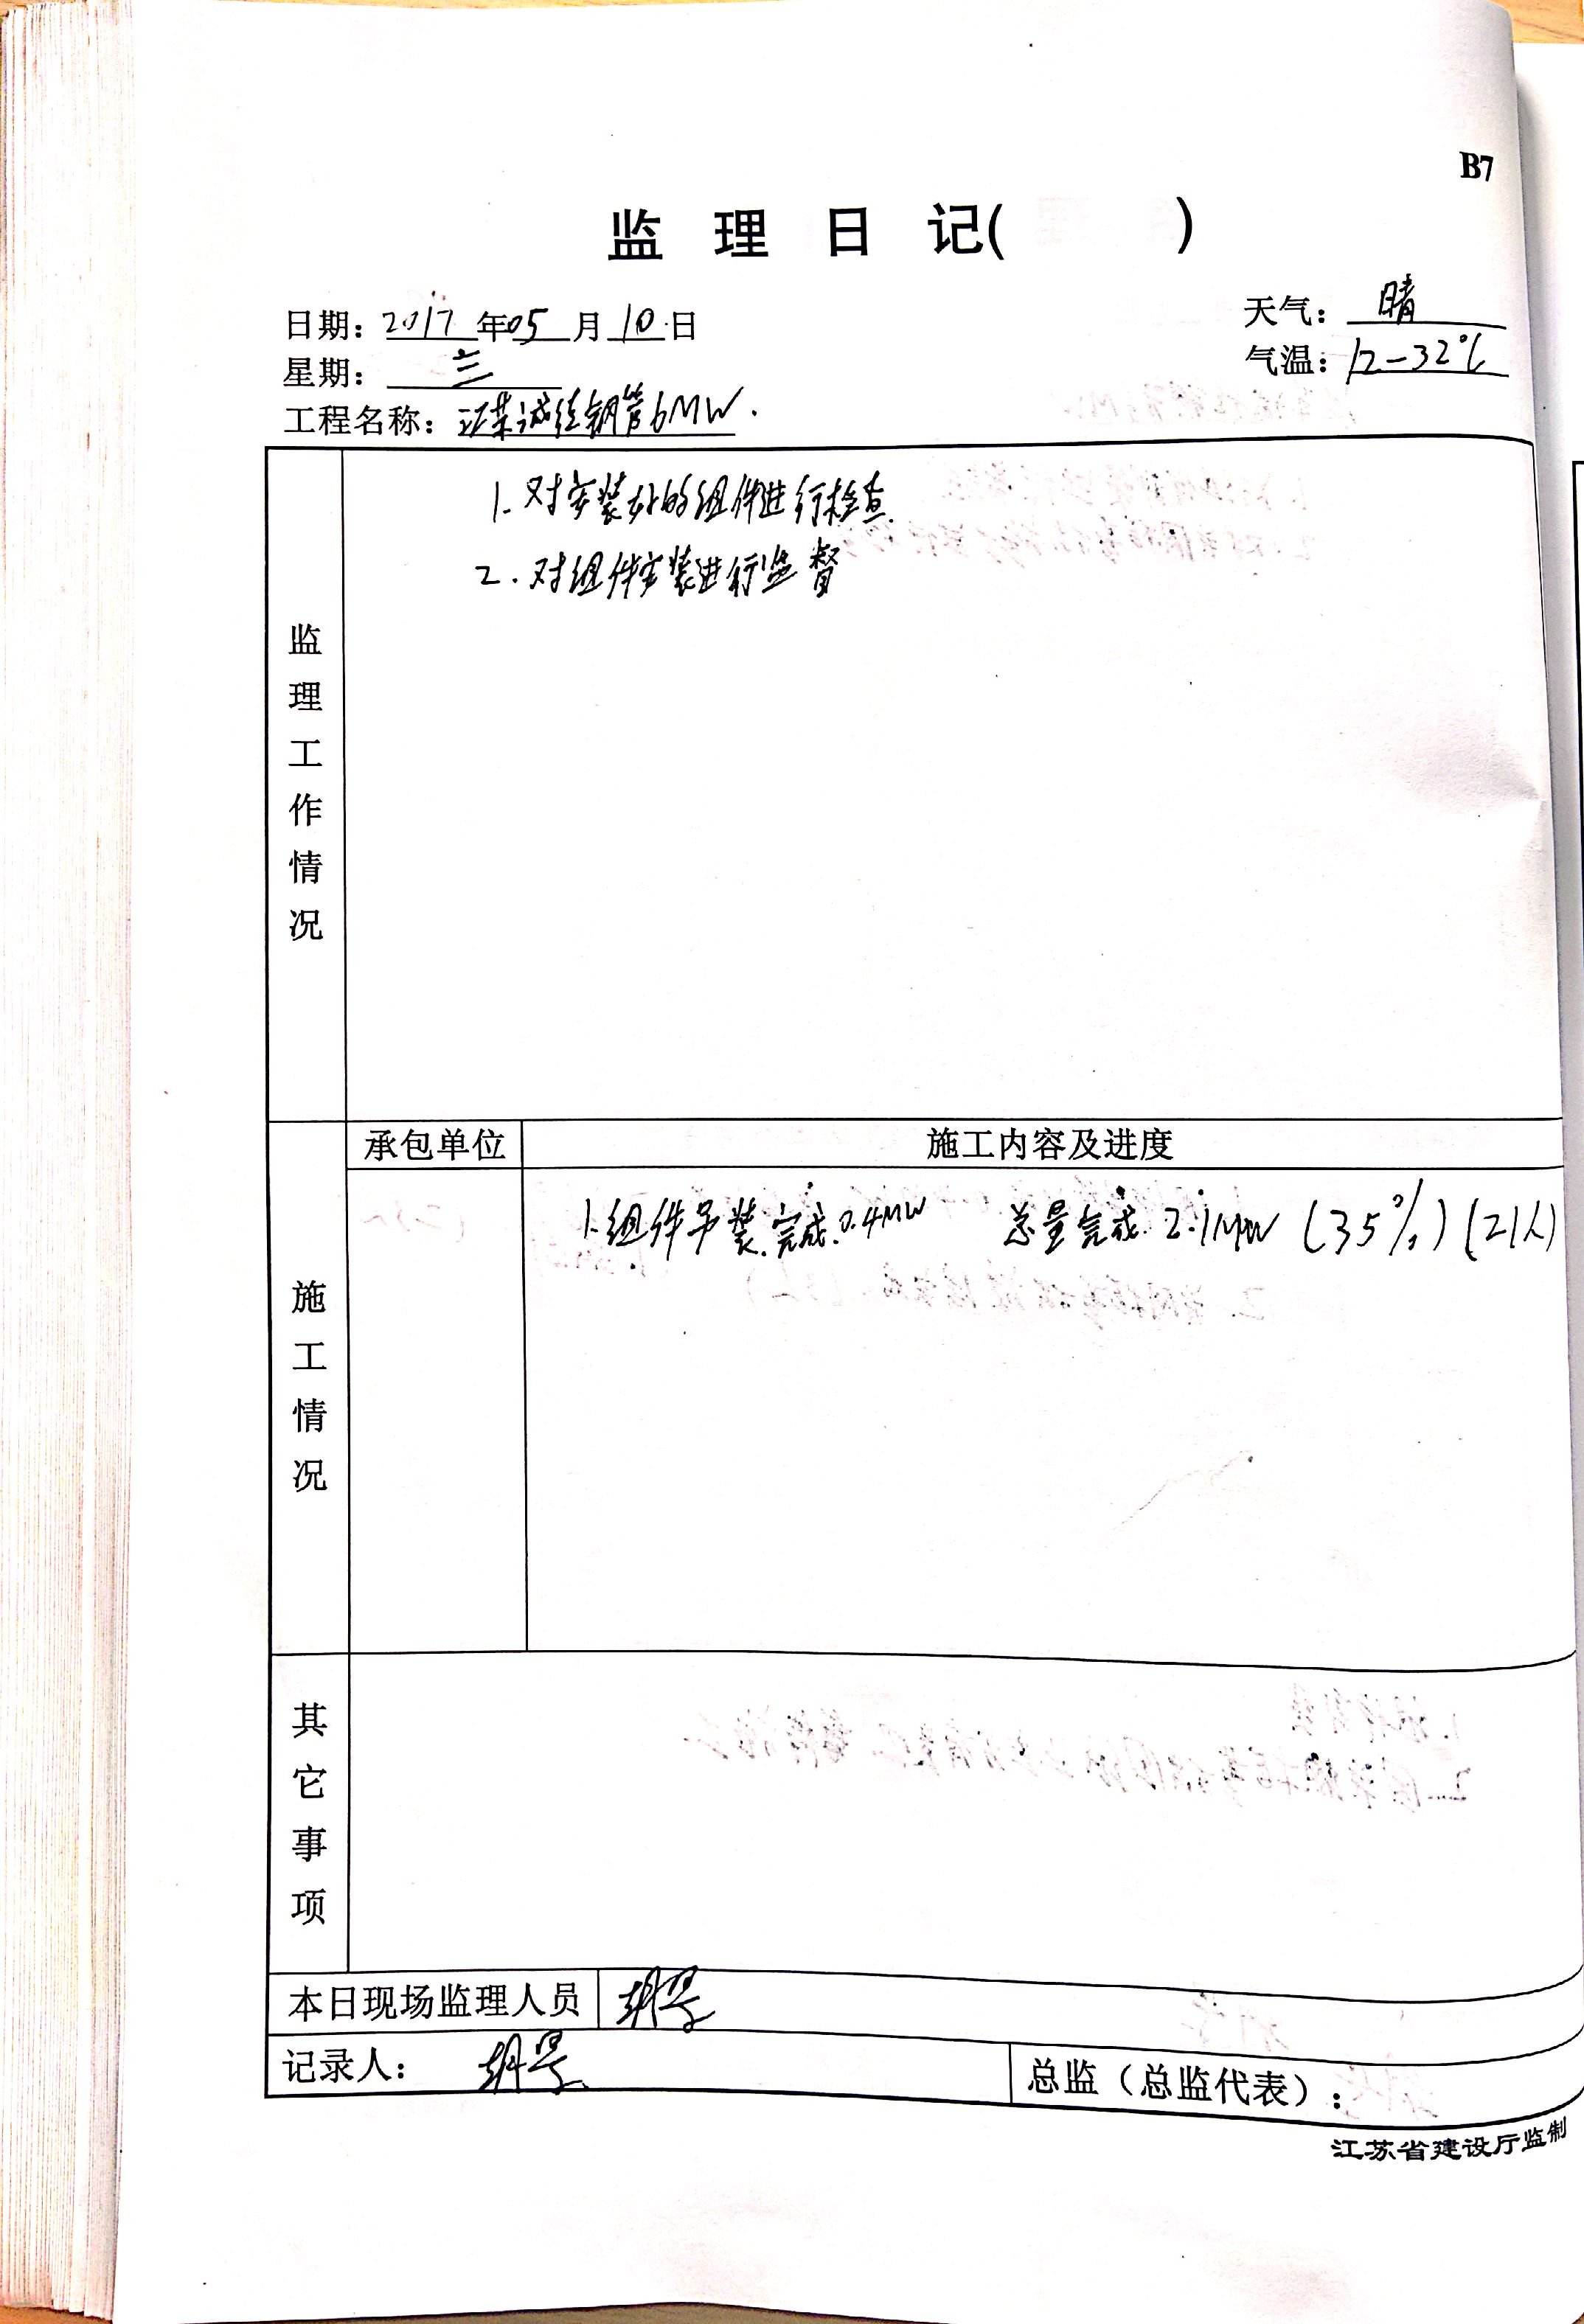 B7
监 理 日 记( )
日期: 2017 年 05 月 10 日
天气: 晴
星期: 三
气温: 12-32℃
工程名称: 钢管6MW.
监理工作情况
1. 对安装好的组件进行检查
2. 对组件安装进行监督
施工情况
承包单位 施工内容及进度
1. 组件吊装.完成.0.4MW 总量完成.2.1MW (35%) (21人)
其它事项
本日现场监理人员
记录人:
总监（总监代表）:
江苏省建设厅监制